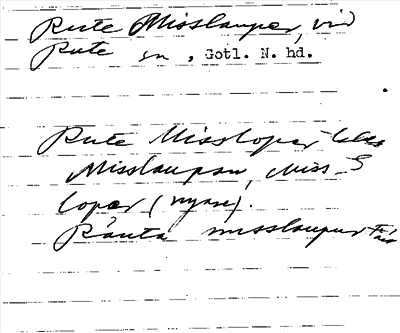 Rute Misslauper, vid
Rute sn, Gotl. N. hd.
Rute Misslopar
Misslaupar, Miss
lopar (nyare).
Råuta misslaupar